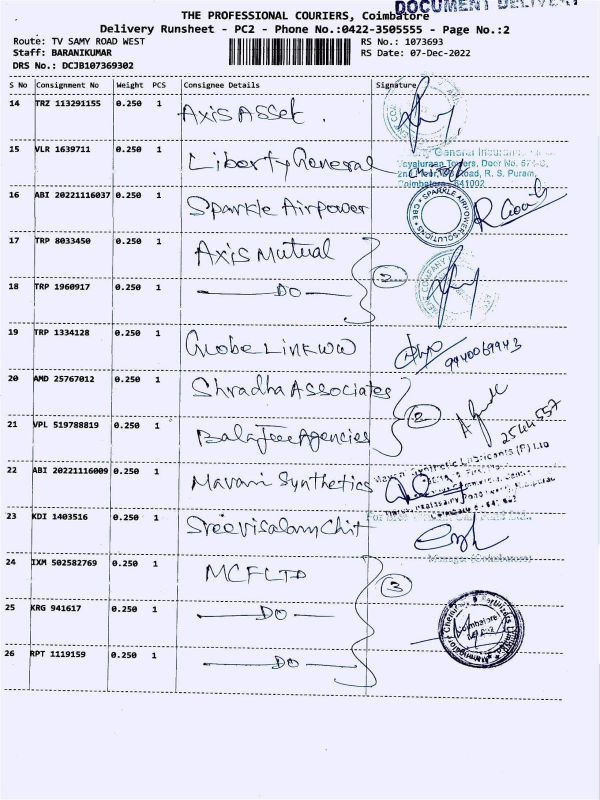 DOCUMENT DELIVERY
THE PROFESSIONAL COURIERS, Coimbatore
Delivery Runsheet - PC2 - Phone No.:0422-3505555 - Page No.:2
Route: TV SAMY ROAD WEST RS No.: 1073693
Staff: BARANIKUMAR RS Date: 07-Dec-2022
DRS No.: DCJB107369302
S No Consignment No Weight PCS Consignee Details Signature
14 TRZ 113291155 0.250 1 Axis Asset.
15 VLR 1639711 0.250 1 Liberty General
General Insurance
Vayaluraan Towers, Door No. 574-C,
Road, R. S. Puram,
Coimbatore 641002
16 ABI 20221116037 0.250 1 Sparkle Airpower
SPARKLE AIRPOWER SOLUTIONS CBE
17 TRP 8033450 0.250 1 Axis Mutual
2
18 TRP 1960917 0.250 1 — DO —
19 TRP 1334128 0.250 1 Globe Link WW 9940069943
20 AMD 25767012 0.250 1 Shradha Associates
2
2544557
21 VPL 519788819 0.250 1 Balajee Agencies
22 ABI 20221116009 0.250 1 Mavani Synthetics
Synthetic Lubricants (P) Ltd
23 KDI 1403516 0.250 1 Sreevisalam Chit
Manager
24 IXM 502582769 0.250 1 MCF LTD
3
25 KRG 941617 0.250 1 — DO —
Mangalore Chemicals & Fertilizers Limited
Coimbatore
26 RPT 1119159 0.250 1 — DO —